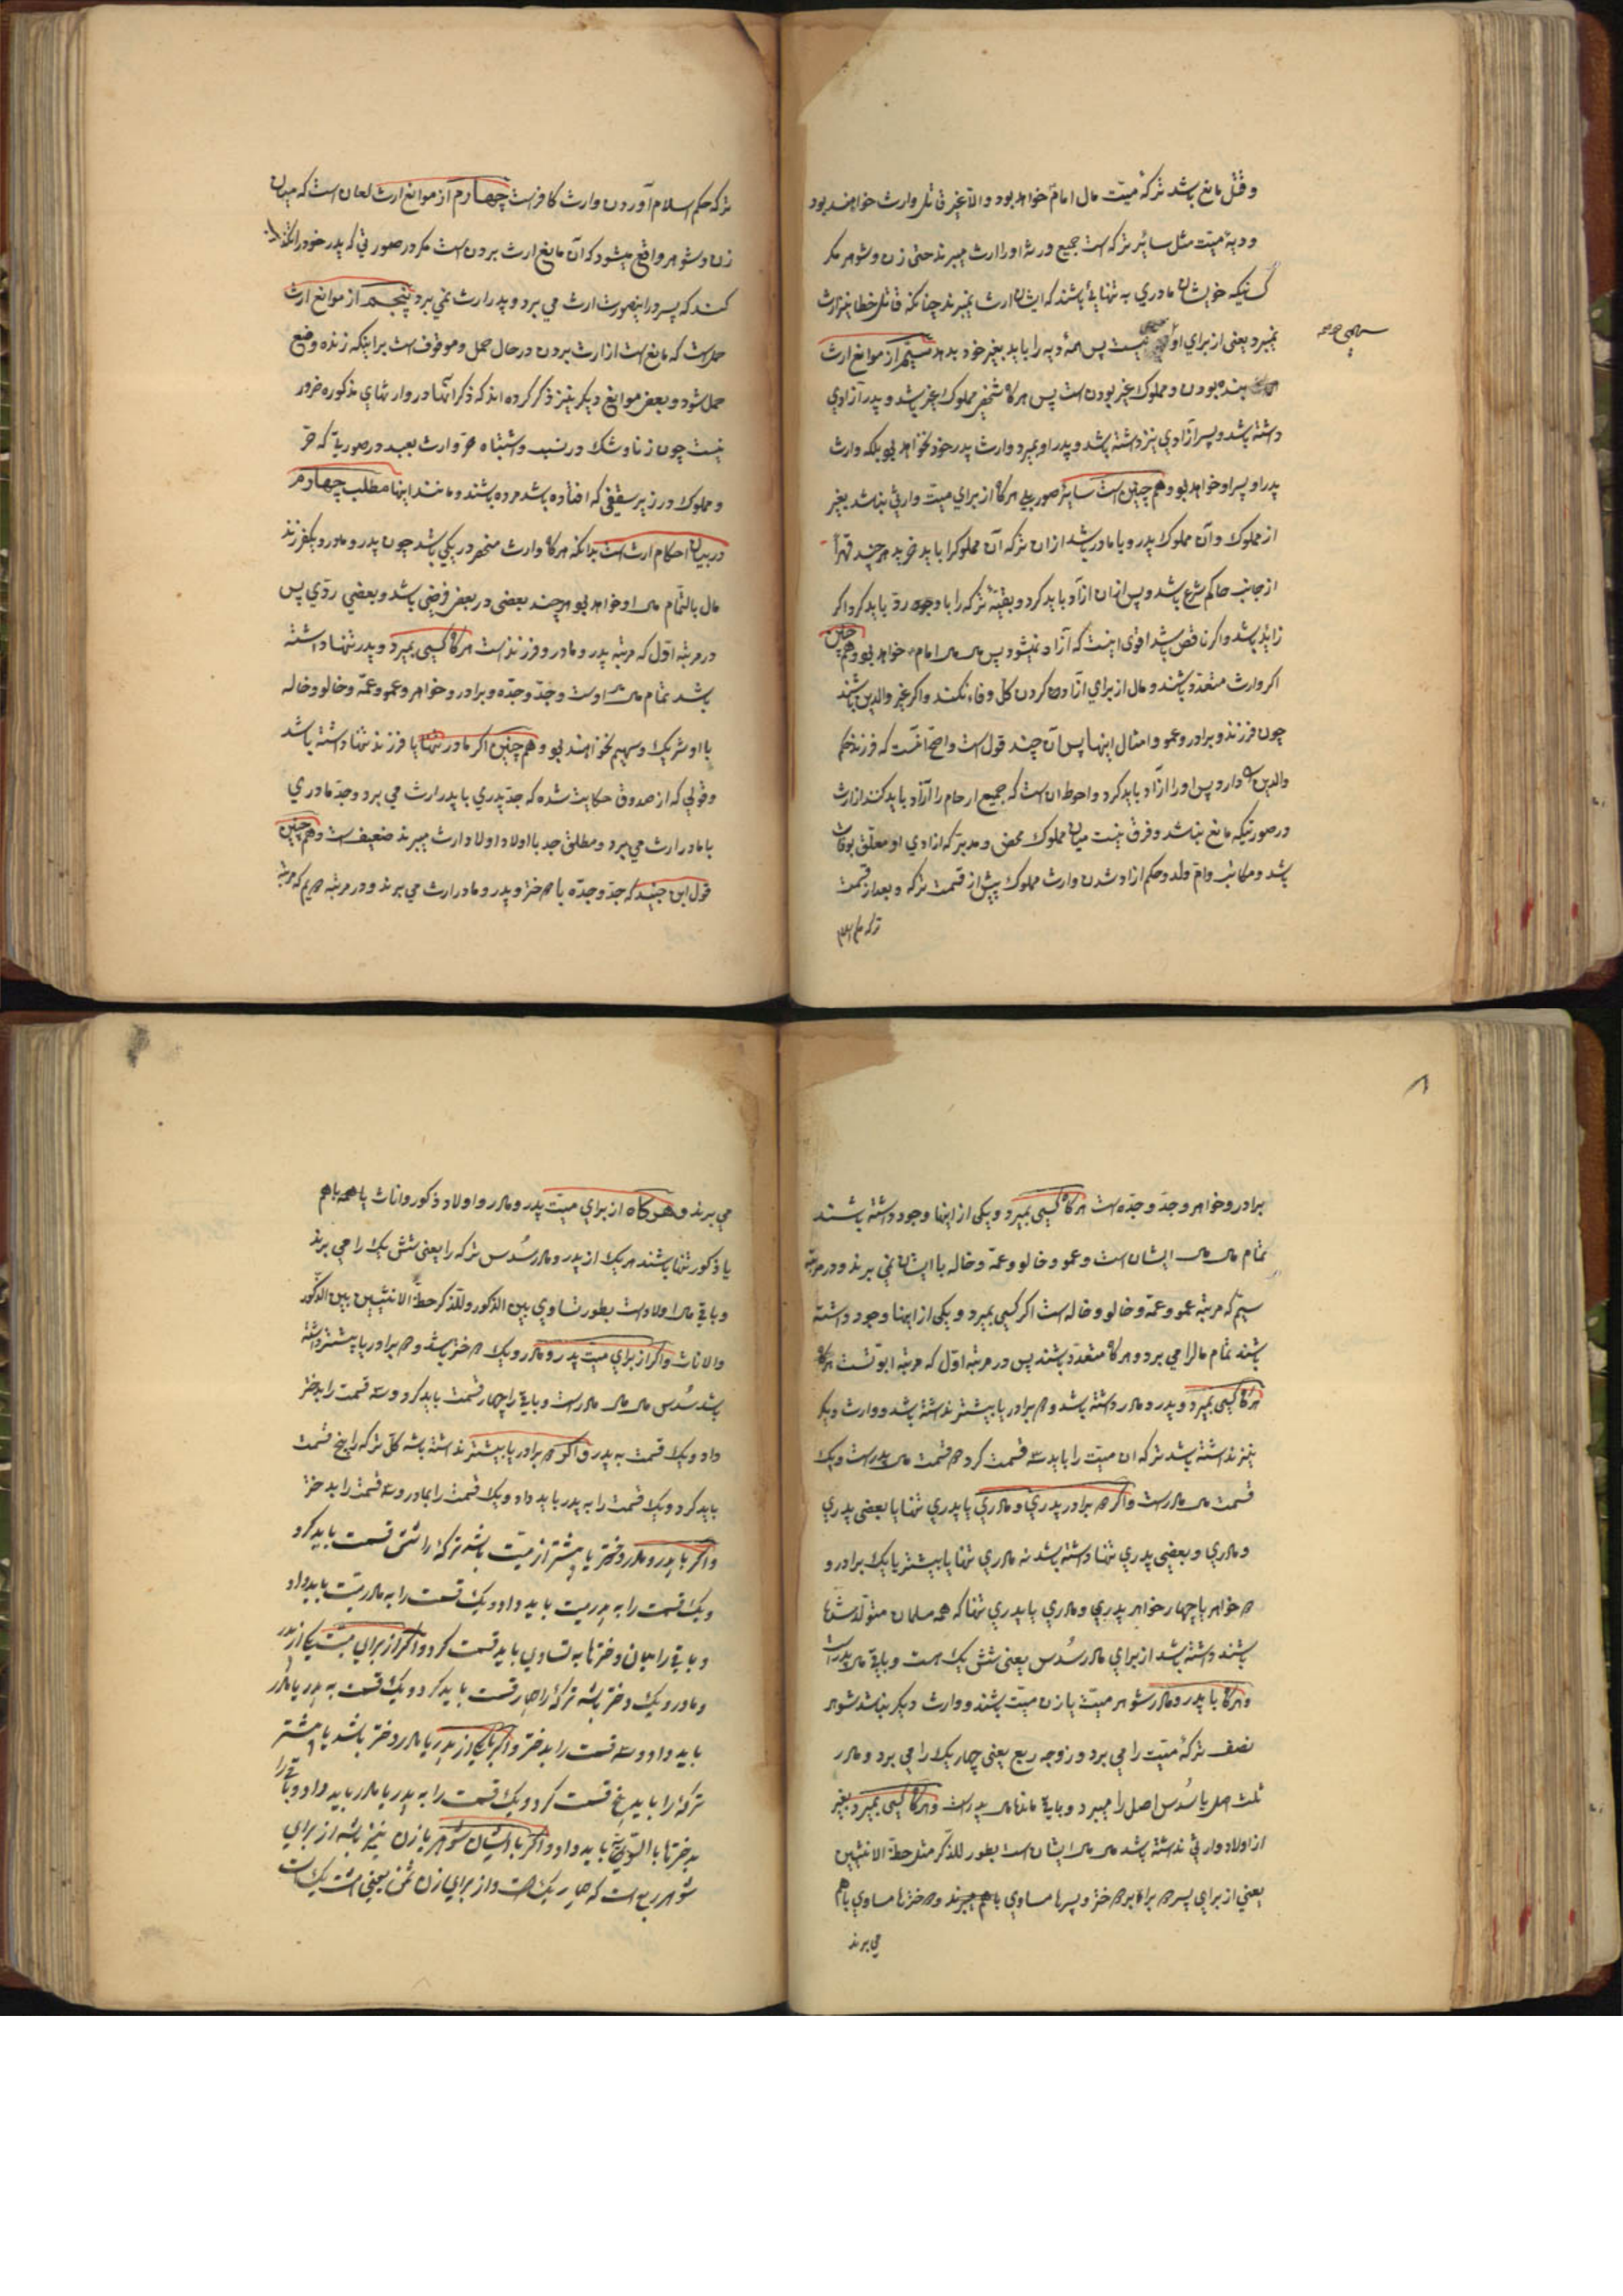 وقتل مانع باشد تركهٔ ميّت مال امامؑ خواهد بود والّا غير قاتل وارث خواهند بود
وديهٔ ميّت مثل سائر تركه است جميع ورثه او را ارث ميبرند حتى زن وشوهر مكر
كسانيكه خويشان مادري به تنهائي باشند كه ايشان ارث نميبرند چنانكه قاتل خطا نيز ارث
سهمى صح
نميبرد يعنى از براى او نيست پس همهٔ ديه را بايد بغير خود بدهد سيّم از موانع ارث
بنده بودن ومملوك غير بودن است پس هركاه شخصى مملوك غير باشد وپدر آزادي
داشته باشد وپسر آزادي نيز داشته باشد وپدر او بميرد وارث پدر خود نخواهد بود بلكه وارث
پدر او پسر او خواهد بود وهم چنين است ساير صور بلى هركاه از براى ميّت وارثي نباشد بغير
از مملوك وآن مملوك پدر ويا مادر باشد از ان تركه آن مملوك را بايد خريد هر چند قهراً
از جانب حاكم شرع باشد وپس از ان آزاد بايد كرد وبقيّهٔ تركه را باو رد بايد كرد اكر
زايد باشد واكر ناقص باشد اقوى اينست كه آزاد نميشود پس مال مال امامؑ خواهد بود وهم چنين
اكر وارث متعدّد باشند ومال از براى آزاد كردن كلّ وفاء نكند واكر غير والدين باشند
چون فرزند وبرادر وعمو وامثال اينها پس در آن چند قول است واصحّ آنست كه فرزند حكم
والدين دارد پس او را آزاد بايد كرد واحوط ان است كه جميع ارحام را آزاد بايد كنند از ارث
درصورتيكه مانع نباشد وفرق نيست ميان مملوك محض ومدبّر كه آزادي او معلّق بوفات
باشد ومكاتب وامّ ولد وحكم آزاد شدن وارث مملوك پيش از قسمت تركه وبعد از قسمت
تركه حكم اسلام
تركه حكم اسلام آوردن وارث كافر است چهارم از موانع ارث لعان است كه ميان
زن وشوهر واقع ميشود كه آن مانع ارث بردن است مكر در صورتي كه پدر خود را تكذيب
كند كه پسر در اينصورت ارث مي برد وپدر ارث نمي برد پنجم از موانع ارث
حمل است كه مانع است از ارث بردن در حال حمل وموقوف است بر اينكه زنده وضع
حمل شود وبعض موانع ديكر نيز ذكر كرده اند كه ذكر آنها در وارثهاي مذكوره ضرور
نيست چون زنا وشك در نسب واشتباه حرّ وارث بعبد در صورتي كه حرّ
ومملوك در زير سقفي كه افتاده باشد مرده باشند ومانند اينها مطلب چهارم
در بيان احكام ارث است بدانكه هركاه وارث منحصر در يكي باشد چون پدر ومادر ويكفرزند
مال بالتمام مال او خواهد بود هرچند بعضى در بعض فرضي باشد وبعضي ردّي پس
در مرتبه اوّل كه مرتبه پدر ومادر وفرزند است هركاه كسي بميرد وپدر تنها داشته
باشد تمام مال مال اوست وجدّ وجدّه وبرادر وخواهر وعمو وعمّه وخالو وخاله
با او شريك وسهيم نخواهند بود وهم چنين اكر مادر تنها يا فرزند تنها داشته باشد
وقولي كه از صدوق حكايت شده كه جدّ پدري با پدر ارث مي برد وجدّ مادري
با مادر ارث مي برد ومطلق جد با اولاد اولاد ارث ميبرند ضعيف است وهم چنين
قول ابن جنيد كه جدّ وجدّه با دختر وپدر ومادر ارث مي برند ودر مرتبه دويم كه مرتبهٔ
برادر وخواهر وجدّ وجدّه است هركاه كسى بميرد ويكى از اينها وجود داشته باشند
تمام مال مال ايشان است وعمو وخالو وعمّه وخاله با ايشان نمي برند ودر مرتبه
سيّم كه مرتبه عمو وعمّه وخالو وخاله است اكر كسى بميرد ويكى از اينها وجود داشته
باشند تمام مالرا مي برد وهركاه متعدّد باشند پس در مرتبه اوّل كه مرتبه ابوّتست هركاه
هركاه كسى بميرد وپدر ومادر داشته باشد ودو برادر يا بيشتر نداشته باشد ووارث ديكر
نيز نداشته باشد تركه ان ميّت را بايد سه قسمت كرد دو قسمت مال پدر است ويك
قسمت مال مادر است واكر دو برادر پدري ومادري يا پدري تنها يا بعضى پدري
ومادري وبعضى پدري تنها داشته باشد نه مادري تنها يا بيشتر يا يك برادر و
دو خواهر يا چهار خواهر پدري ومادري يا پدري تنها كه همه مسلمان متولّد شده
باشند داشته باشد از براى مادر سُدس يعنى شش يك است وباقي مال پدر است
وهركاه با پدر ومادر شوهر ميّت يا زن ميّت باشند ووارث ديكر نباشد شوهر
نصف تركهٔ ميّت را مي برد وزوجه ربع يعنى چهار يك را مي برد ومادر
ثلث اصل يا سُدس اصل را ميبرد وباقي مانده مال پدر است وهركاه كسى بميرد وبغير
از اولاد وارثي نداشته باشد مال مال ايشان است بطور للذّكر مثل حظّ الانثيين
يعني از براى پسر دو برابر دختر وپسرها مساوي با هم ميبرند ودخترها مساوي با هم
مي برند
مي برند وهركاه از براي ميّت پدر ومادر واولاد ذكور واناث با همه باهم
يا ذكور تنها باشند هر يك از پدر ومادر سُدس تركه را يعنى شش يك را مي برند
وباقي مال اولاد است بطور تساوي بين الذكور وللذّكر حظّ الانثيين بين الذكور
والاناث واكر از براي ميت پدر ومادر ويك دختر باشد ودو برادر يا بيشتر داشته
باشد سُدس مال مال مادر است وباقي را چهار قسمت بايد كرد وسه قسمت را بدختر
داد ويك قسمت به پدر واكر دو برادر يا بيشتر نداشته باشد كلّ تركه را پنج قسمت
بايد كرد ويك قسمت را به پدر بايد داد ويك قسمت را بمادر وسه قسمت را بدختر
واكر با پدر ومادر دو دختر يا بيشتر از ميّت باشد تركه را شش قسمت بايد كرد
ويك قسمت را به پدر ميت بايد داد ويك قسمت را به مادر ميّت بايد داد
وباقي را ميان دخترها به تساوي بايد قسمت كرد واكر از براي ميت يكي از پدر
ومادر ويك دختر باشد تركه را چهار قسمت بايد كرد ويك قسمت به پدر يا مادر
بايد داد وسه قسمت را بدختر واكر با يكي از پدر يا مادر دو دختر باشد يا بيشتر
تركه را بايد پنج قسمت كرد ويك قسمت را به پدر يا مادر بايد داد وباقي را
بدخترها بالسّويّه بايد داد واكر با ايشان شوهر يا زن نيز باشد از براي
شوهر ربع است كه چهار يك است واز براي زن ثمن يعني هشت يك است